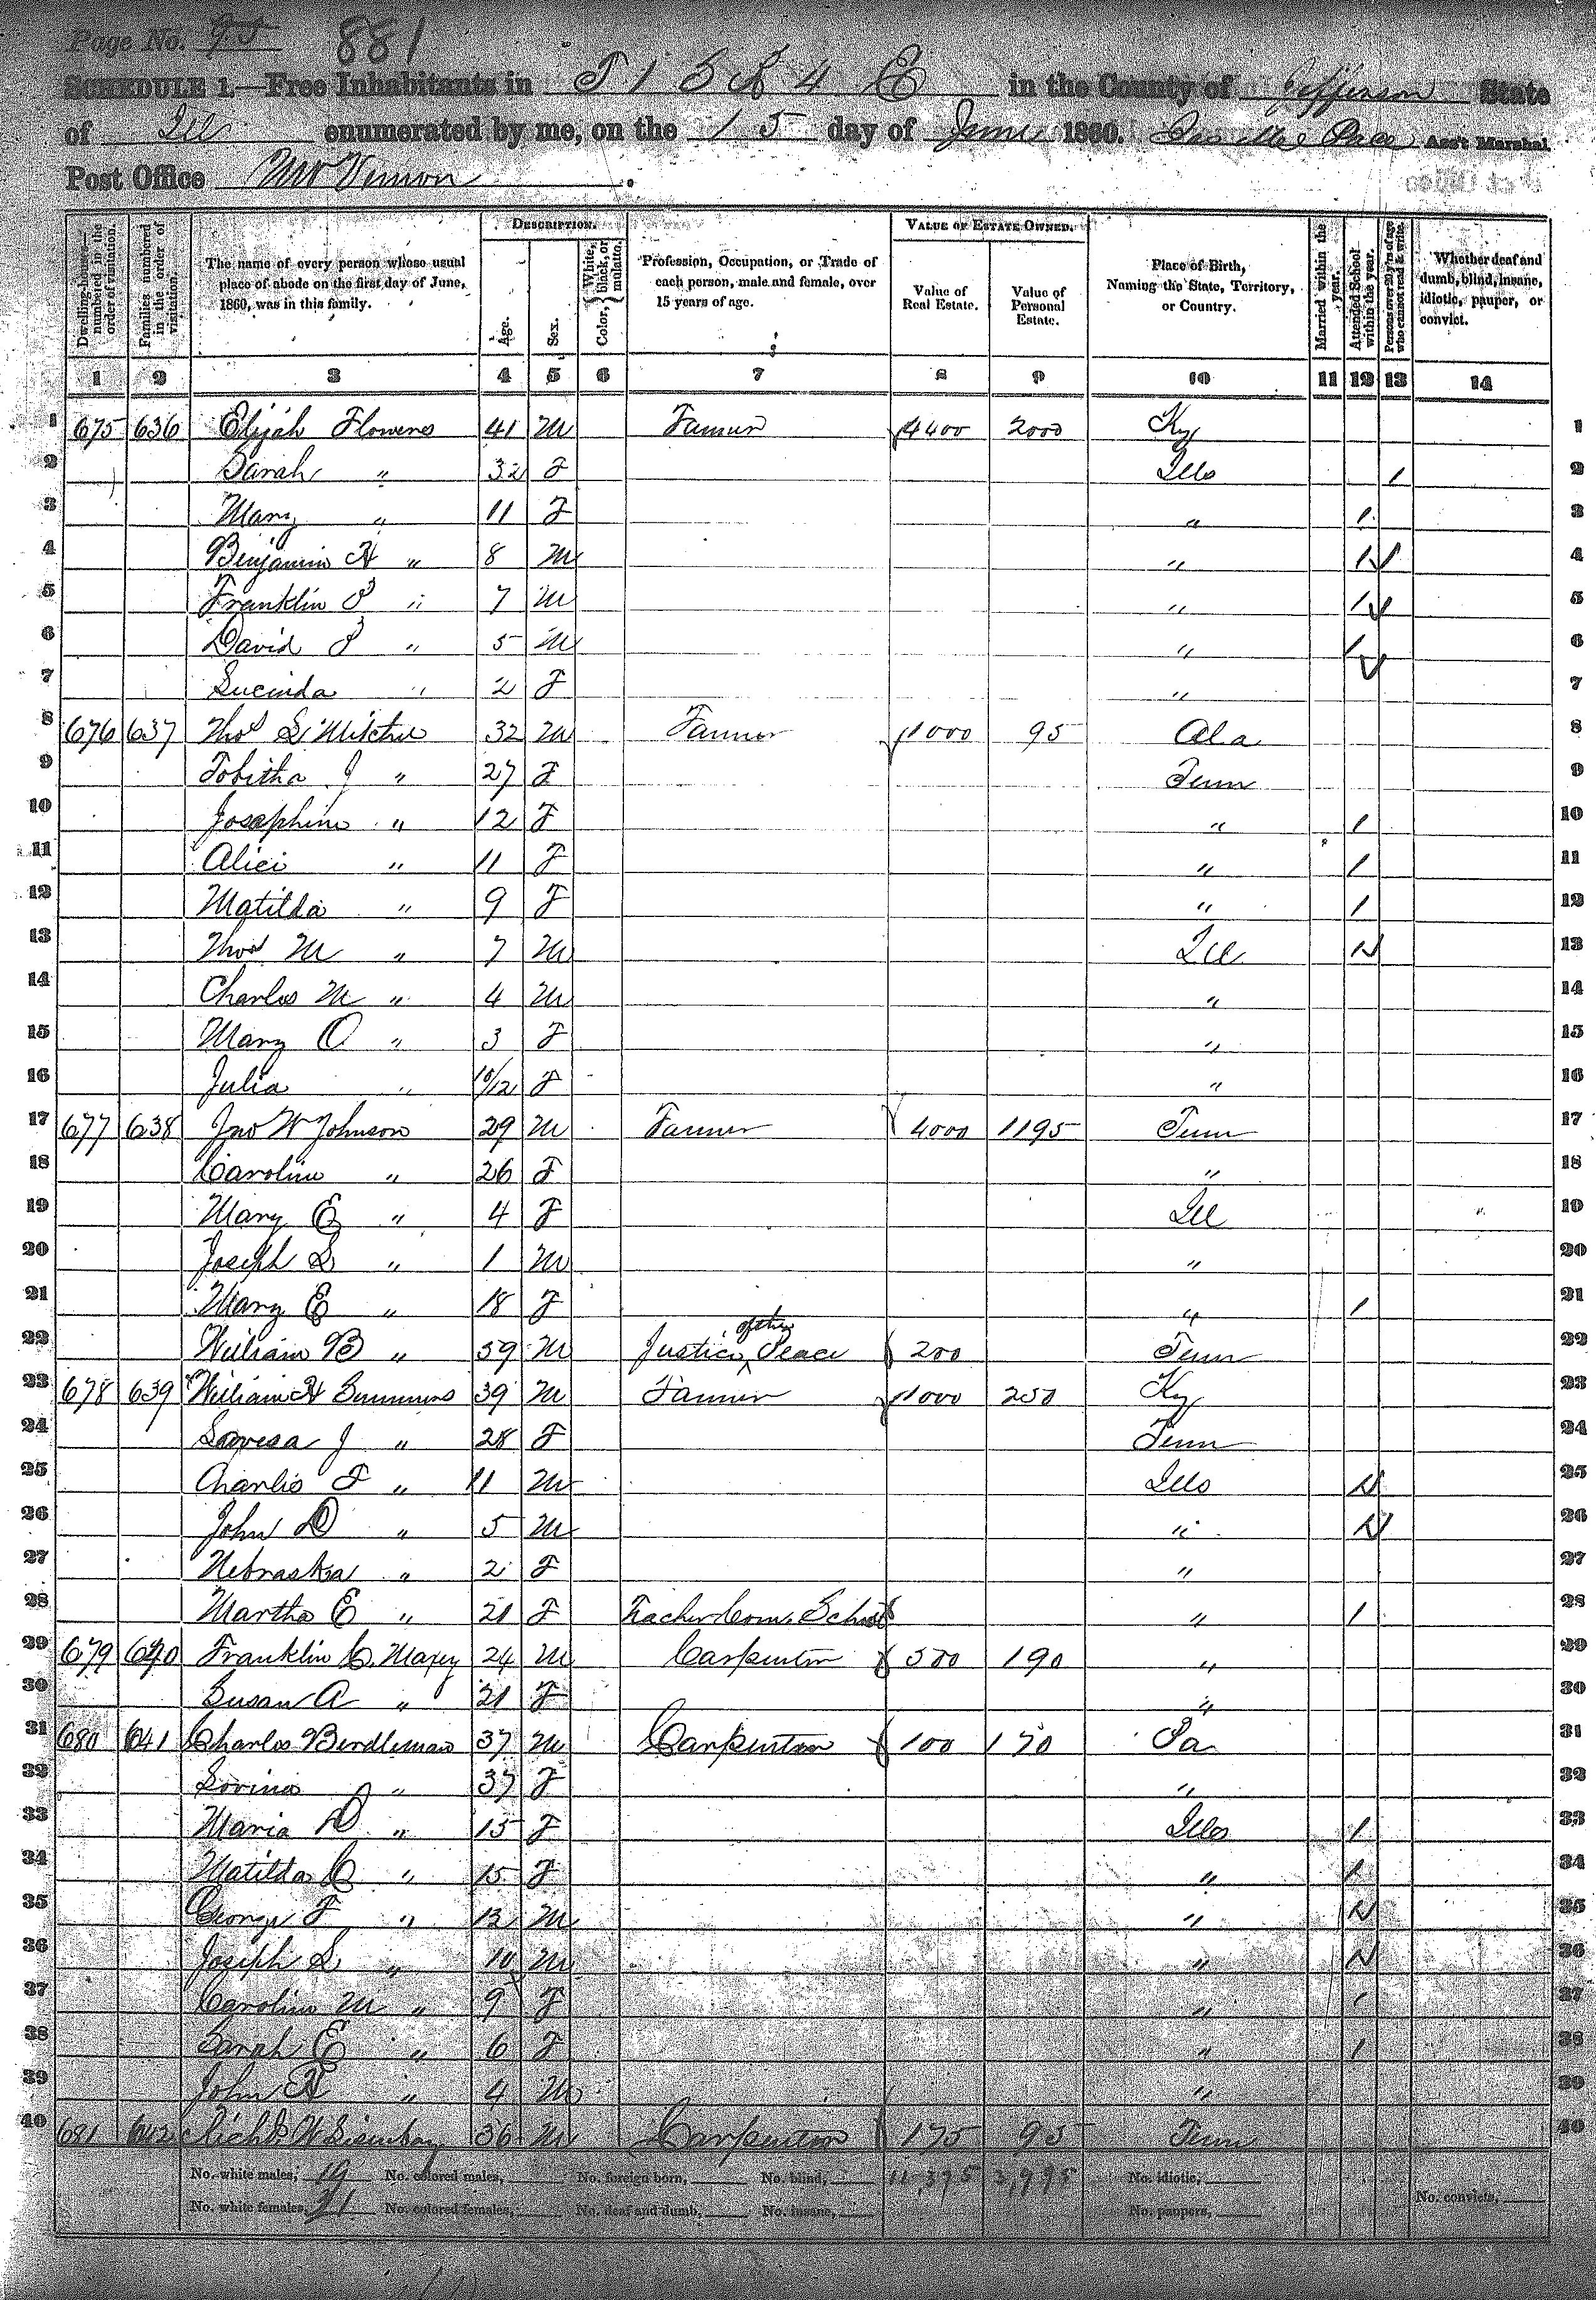 Page No. 95 881
SCHEDULE 1.—Free Inhabitants in T 1 S R 4 E in the County of Jefferson State
of Ill enumerated by me, on the 15 day of June 1860. Pace Ass't Marshal
Post Office Mt Vernon.
DESCRIPTION. VALUE OF ESTATE OWNED.
Dwelling-houses— numbered in the order of visitation. Families numbered in the order of visitation. The name of every person whose usual place of abode on the first day of June, 1860, was in this family. Age. Sex. Color, { White, black, or mulatto. Profession, Occupation, or Trade of each person, male and female, over 15 years of age. Value of Real Estate. Value of Personal Estate. Place of Birth, Naming the State, Territory, or Country. Married within the year. Attended School within the year. Persons over 20 y'rs of age who cannot read & write. Whether deaf and dumb, blind, insane, idiotic, pauper, or convict.
1 2 3 4 5 6 7 8 9 10 11 12 13 14
1 675 636 Elijah Flowers 41 M Farmer 4400 2000 Ky 1
2 Sarah " 32 F Ills / 2
3 Mary " 11 F " / 3
4 Benjamin H " 8 M " / 4
5 Franklin P " 7 M " / 5
6 David P " 5 M " / 6
7 Lucinda " 2 F " 7
8 676 637 Thos L Mitchel 32 M Farmer 1000 95 Ala 8
9 Tobitha J " 27 F Tenn 9
10 Josephine " 12 F " / 10
11 Alice " 11 F " / 11
12 Matilda " 9 F " / 12
13 Thos M " 7 M Ill / 13
14 Charles M " 4 M " 14
15 Mary O " 3 F " 15
16 Julia " 10/12 F " 16
17 677 638 Jno W Johnson 29 M Farmer 4000 1195 Tenn 17
18 Caroline " 26 F " 18
19 Mary E " 4 F Ill 19
20 Joseph L " 1 M " 20
21 Mary E " 18 F " / 21
22 William B " 59 M Justice of the Peace 200 Tenn 22
23 678 639 William H Summers 39 M Farmer 1000 250 Ky 23
24 Lovesa J " 28 F Tenn 24
25 Charles F " 11 M Ills / 25
26 John D " 5 M " / 26
27 Nebraska " 2 F " 27
28 Martha E " 21 F Teacher Com. School " / 28
29 679 640 Franklin C. Maxey 24 M Carpenter 500 190 " 29
30 Susan A " 21 F " 30
31 680 641 Charles Birdleman 37 M Carpenter 100 170 Pa 31
32 Lovina " 37 F " 32
33 Maria D " 15 F Ills / 33
34 Matilda C " 15 F " / 34
35 George F " 12 M " / 35
36 Joseph L " 10 M " / 36
37 Caroline M " 9 F " / 37
38 Sarah E " 6 F " / 38
39 John H " 4 M " 39
40 681 642 Richd W 36 M Carpenter 175 95 Tenn 40
No. white males, 19 No. colored males, No. foreign born, No. blind, 11,375 3,995 No. idiotic,
No. white females, 21 No. colored females, No. deaf and dumb, No. insane, No. paupers, No. convicts,